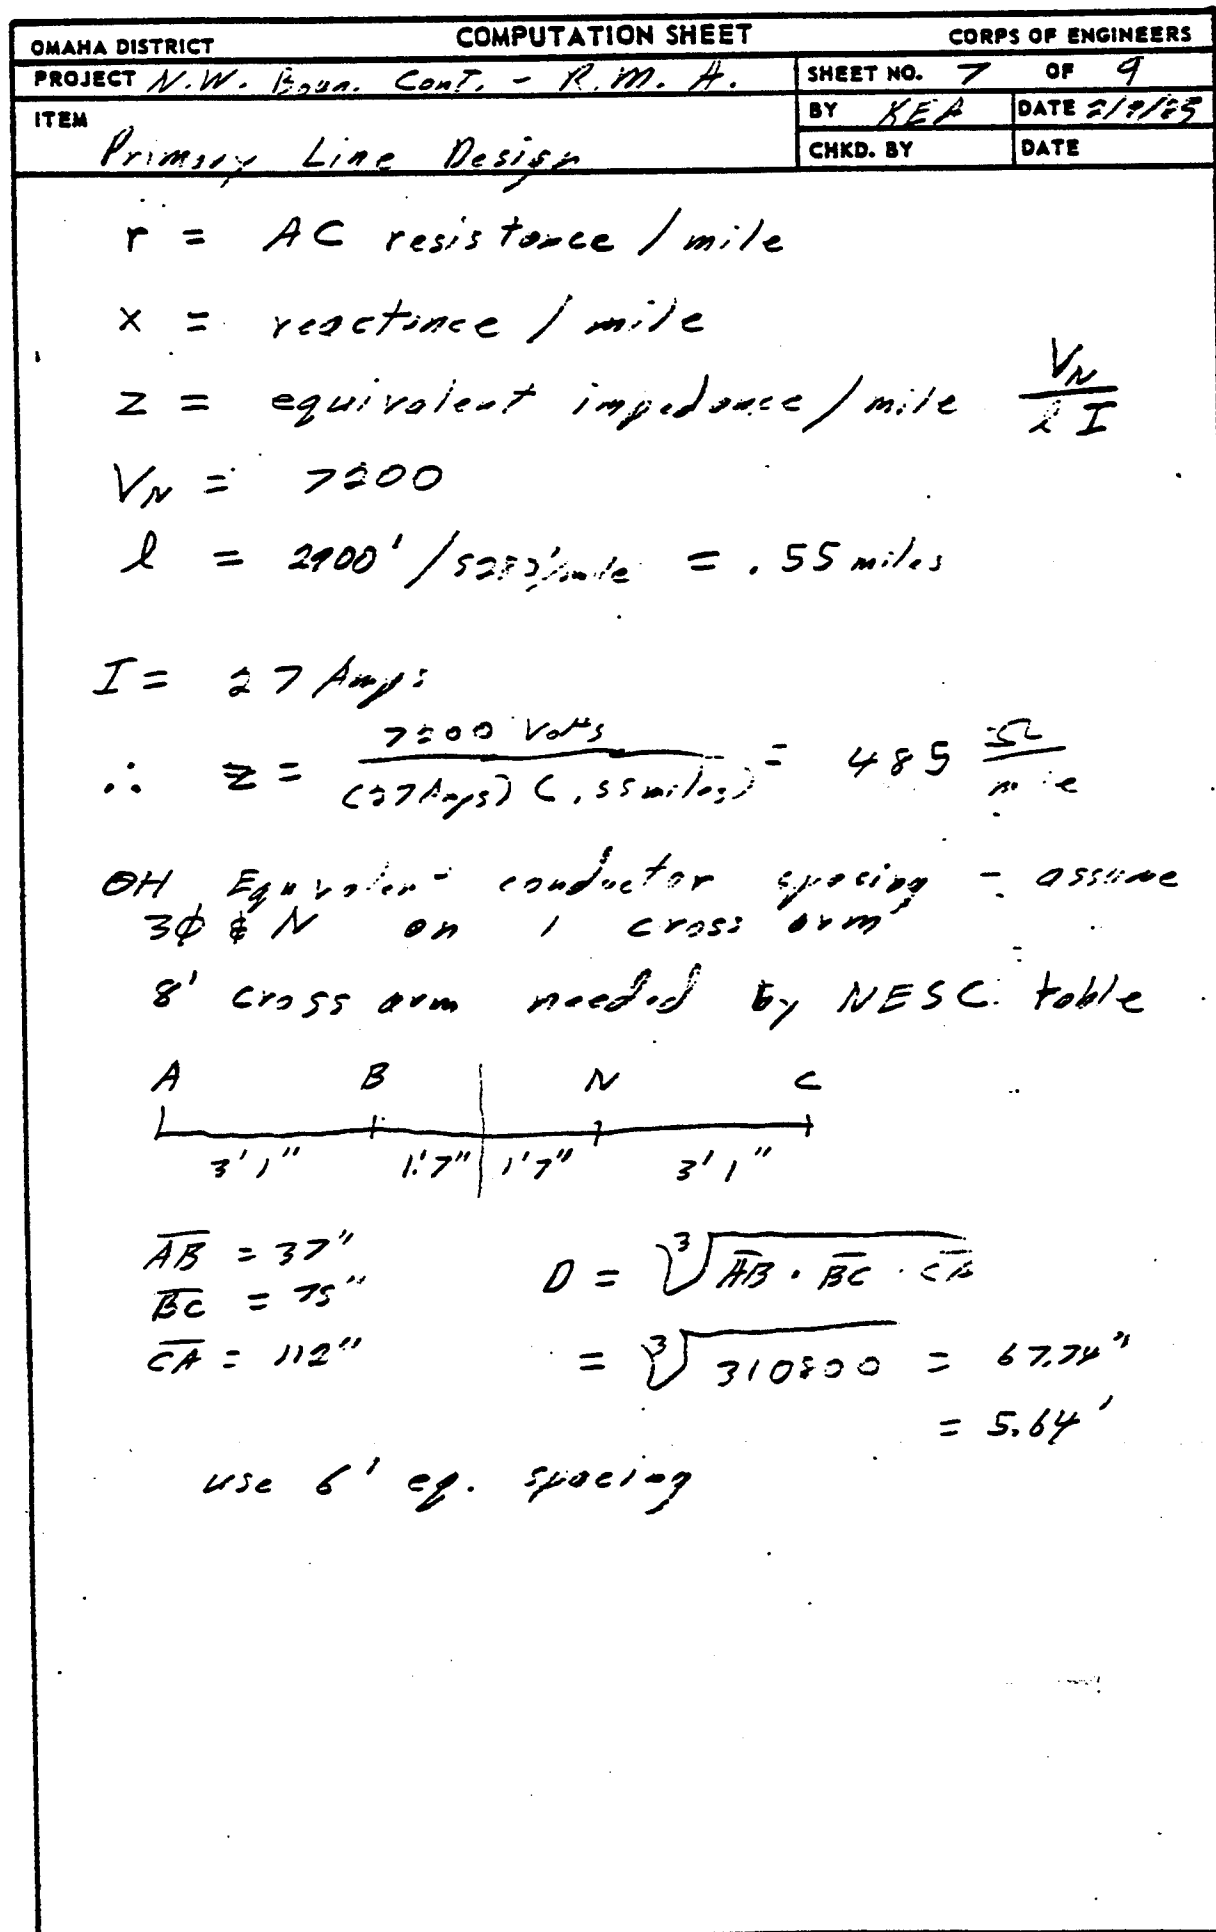 OMAHA DISTRICT COMPUTATION SHEET CORPS OF ENGINEERS
PROJECT N.W. Boun. Cont. - R.M.A. SHEET NO. 7 OF 9
ITEM BY KEA DATE
Primary Line Design CHKD. BY DATE
r = AC resistance / mile
x = reactance / mile
z = equivalent impedance / mile V_N / l I
V_N = 7200
l = 2900' / 5280'/mile = .55 miles
I = 27 Amps
∴ z = 7200 Volts / (27 Amps) (.55 miles) = 485 Ω / mile
OH Equivalent conductor spacing - assume
3φ & N on 1 cross arm
8' cross arm needed by NESC table
A B N C
3'1" 1'7" 1'7" 3'1"
AB = 37"
BC = 75" D = ∛ AB · BC · CA
CA = 112" = ∛ 310800 = 67.74"
= 5.64'
use 6' eq. spacing